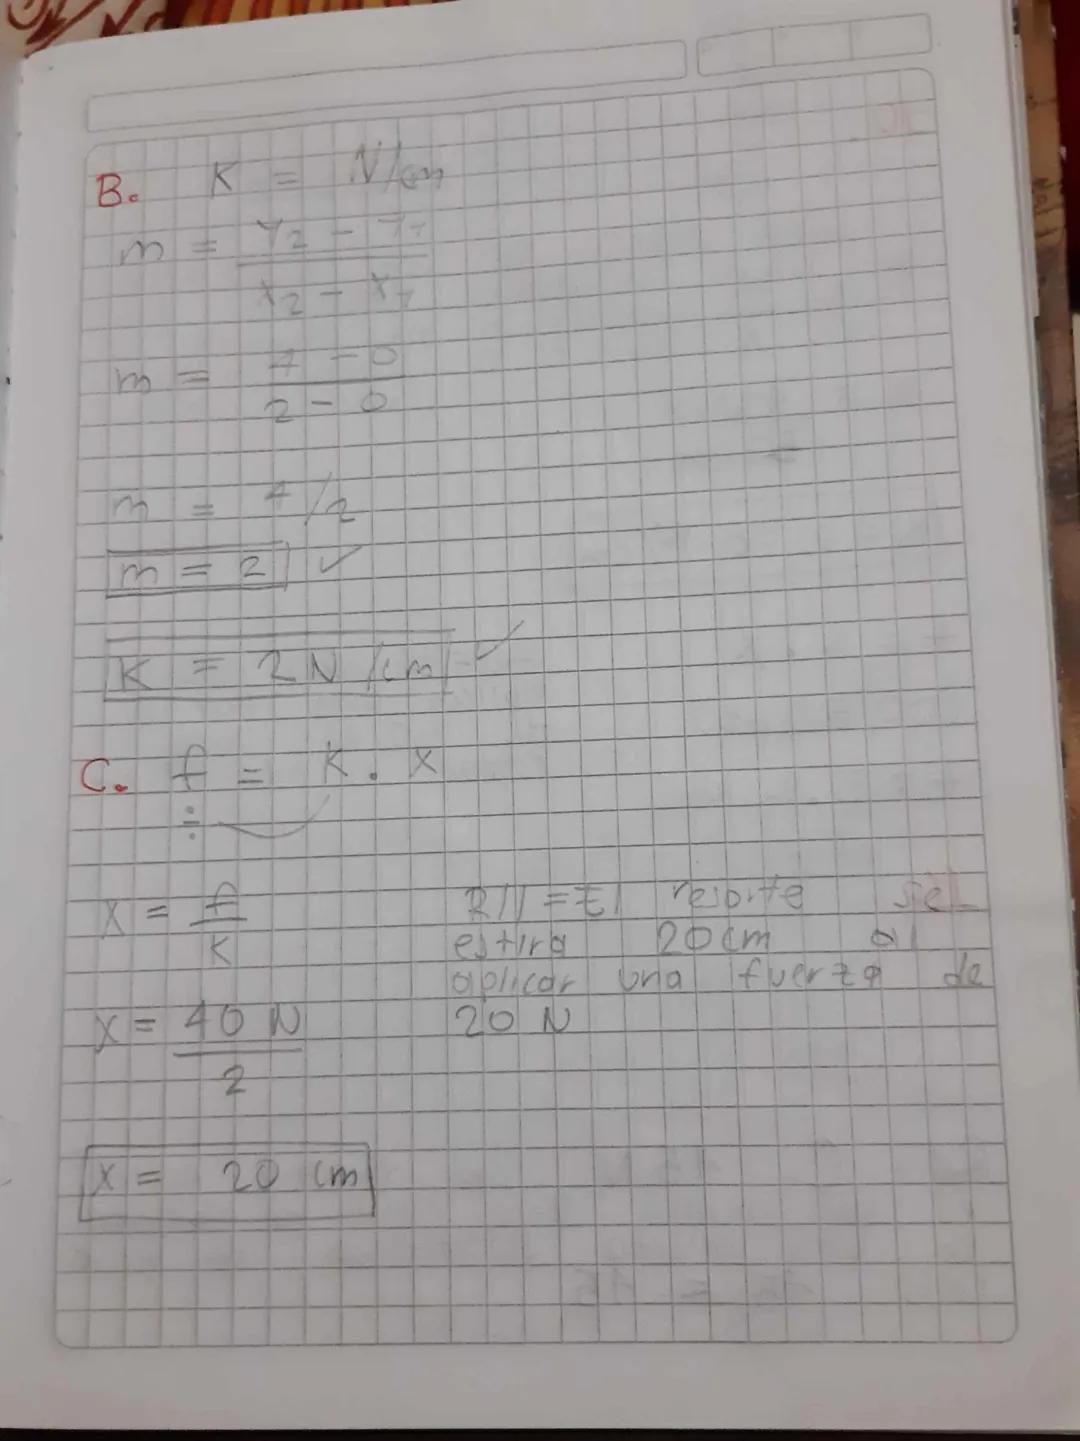 B. K = N/cm
m = Y2 - Y1
X2 - X1
m = 4 - 0
2 - 0
m = 4/2
m = 2 ✓
K = 2N/cm ✓
C. f = K . X
÷
X = f
K
X = 40 N
2
X = 20 cm
R// = El resorte se
estira 20 cm al
aplicar una fuerza de
20 N